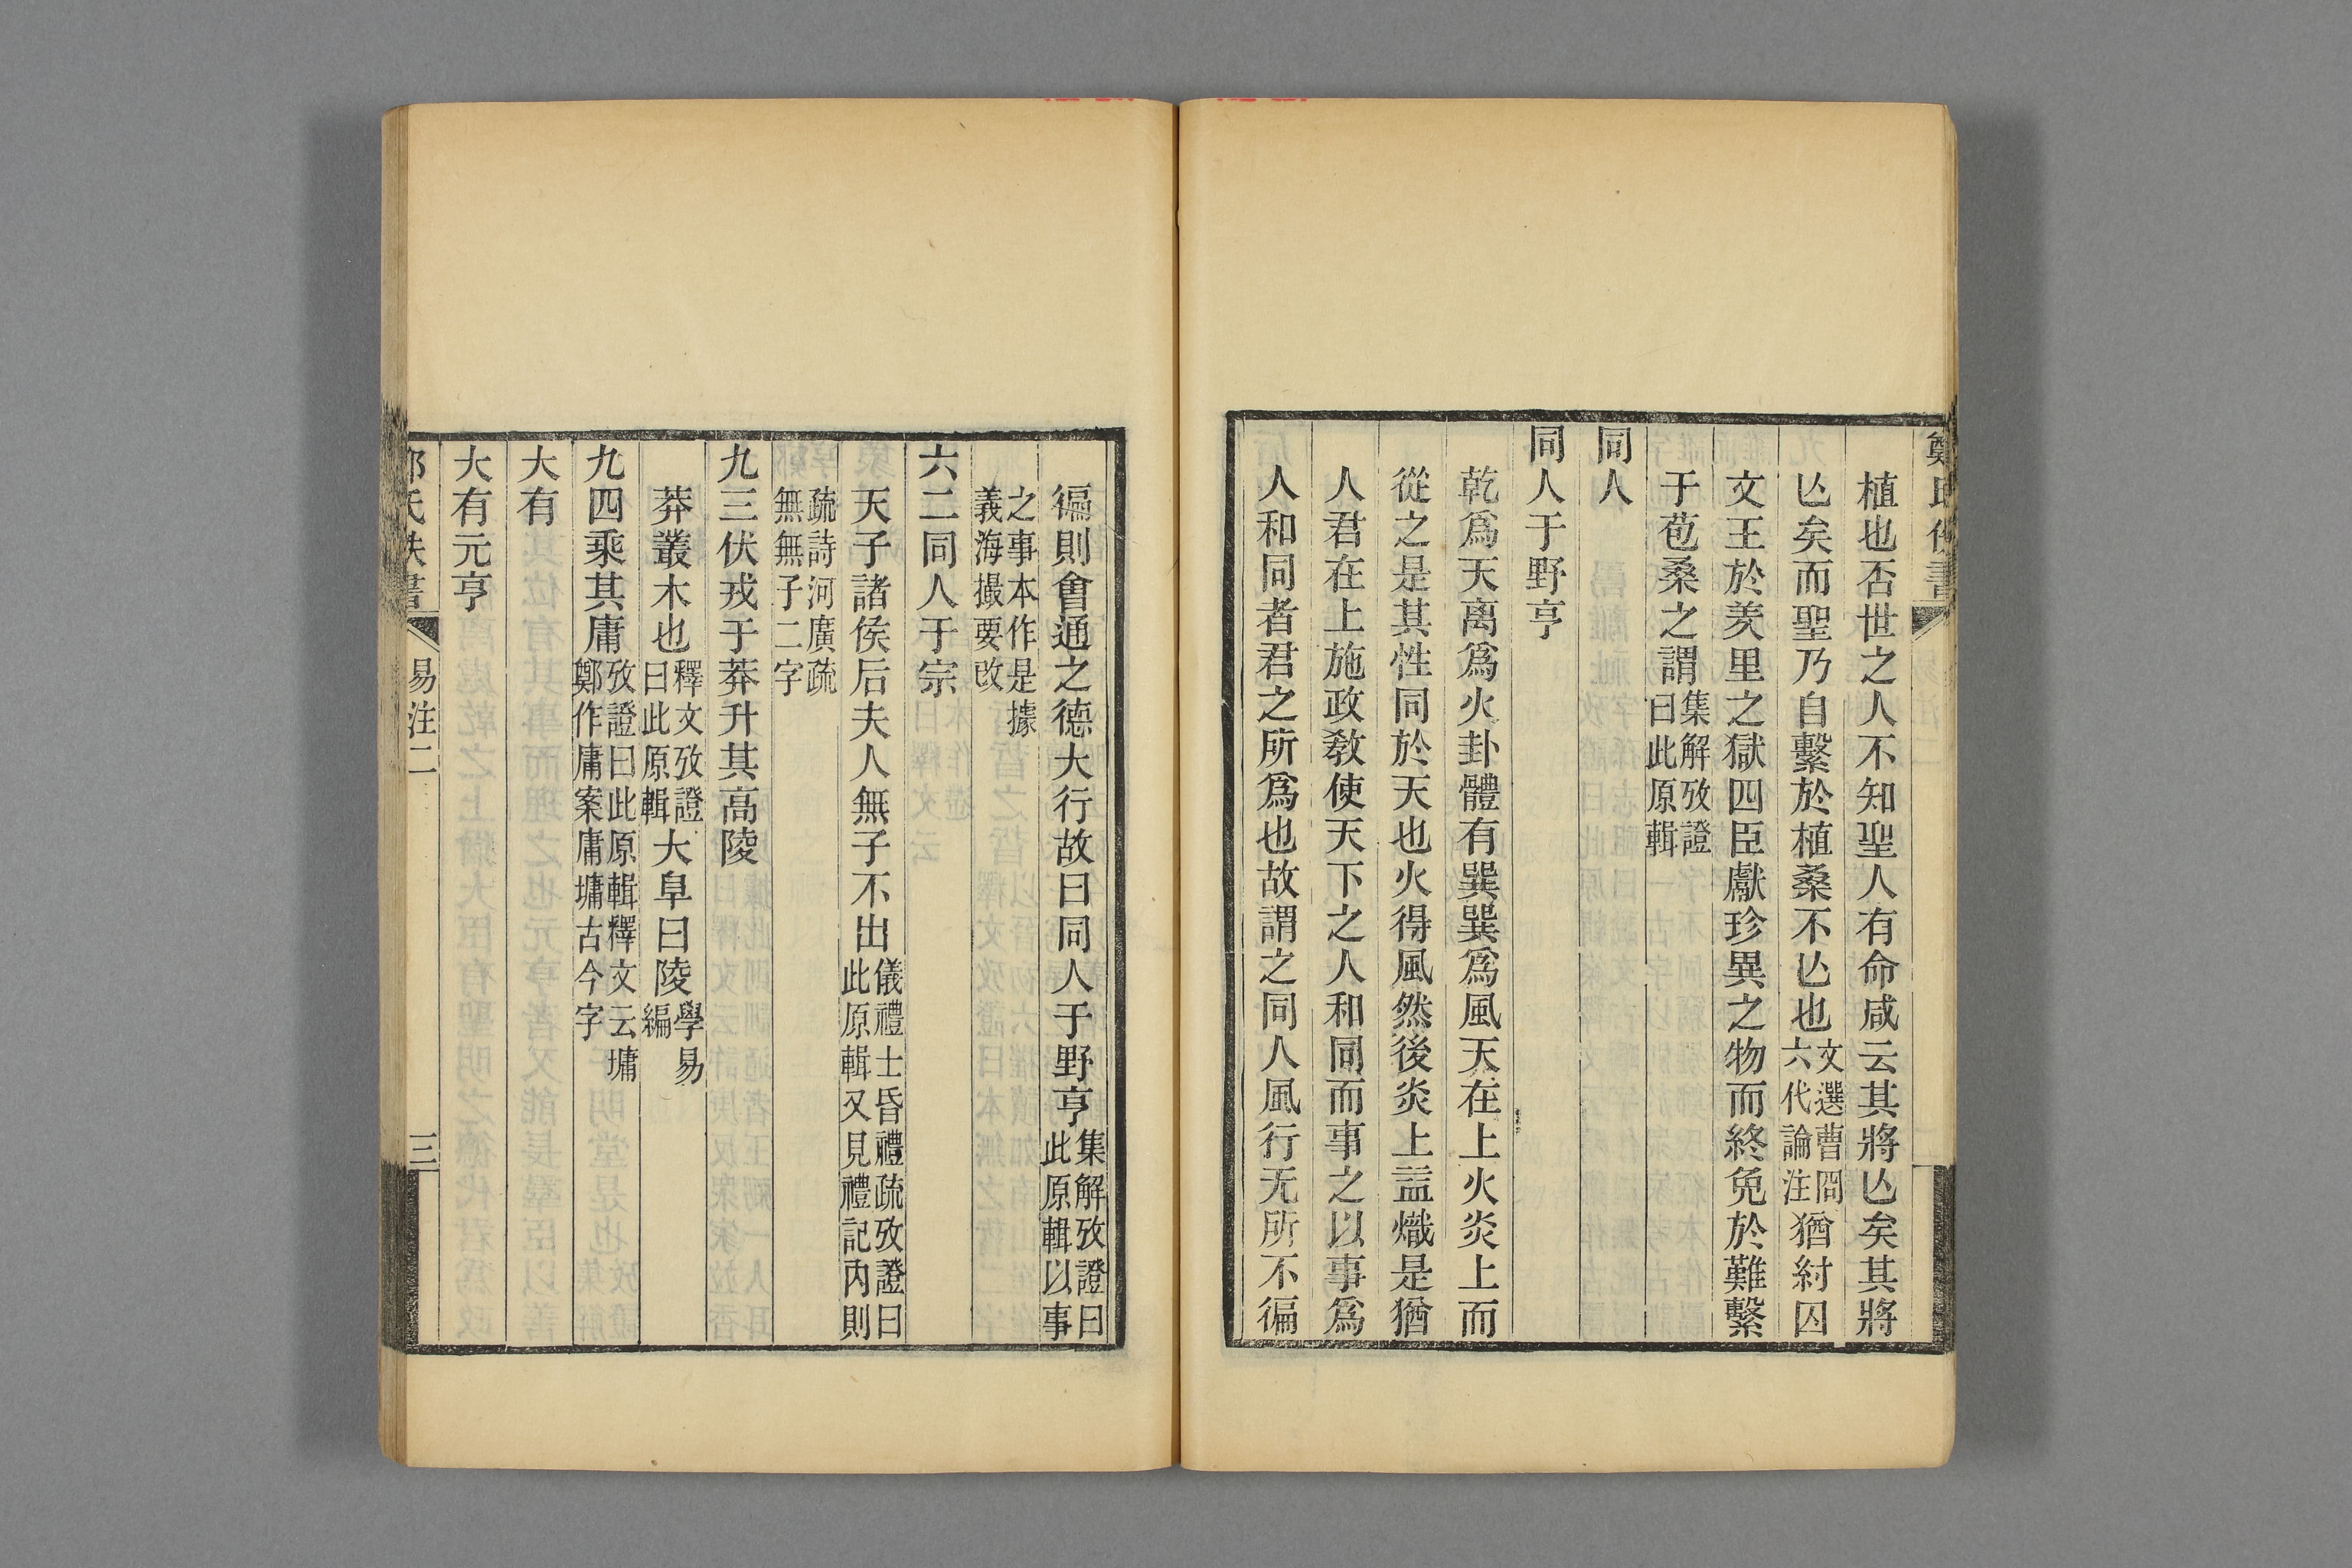 植也否世之人不知聖人有命咸云其將亾矣其將
亾矣而聖乃自繫於植桑不亾也文選曹冏六代論注猶紂囚
文王於羑里之獄四臣獻珍異之物而終免於難繫
于苞桑之謂集解攷證曰此原輯
同人
同人于野亨
乾爲天离爲火卦體有巽巽爲風天在上火炎上而
從之是其性同於天也火得風然後炎上益熾是猶
人君在上施政敎使天下之人和同而事之以事爲
人和同者君之所爲也故謂之同人風行无所不徧
徧則會通之德大行故曰同人于野亨集解攷證曰此原輯以事
之事本作是據義海撮要改
六二同人于宗
天子諸侯后夫人無子不出儀禮士昏禮疏攷證曰此原輯又見禮記內則
疏詩河廣疏無無子二字
九三伏戎于莽升其高陵
莽叢木也釋文攷證曰此原輯大阜曰陵學易編
九四乘其庸攷證曰此原輯釋文云墉鄭作庸案庸墉古今字
大有
大有元亨
氏佚書 易注二 三